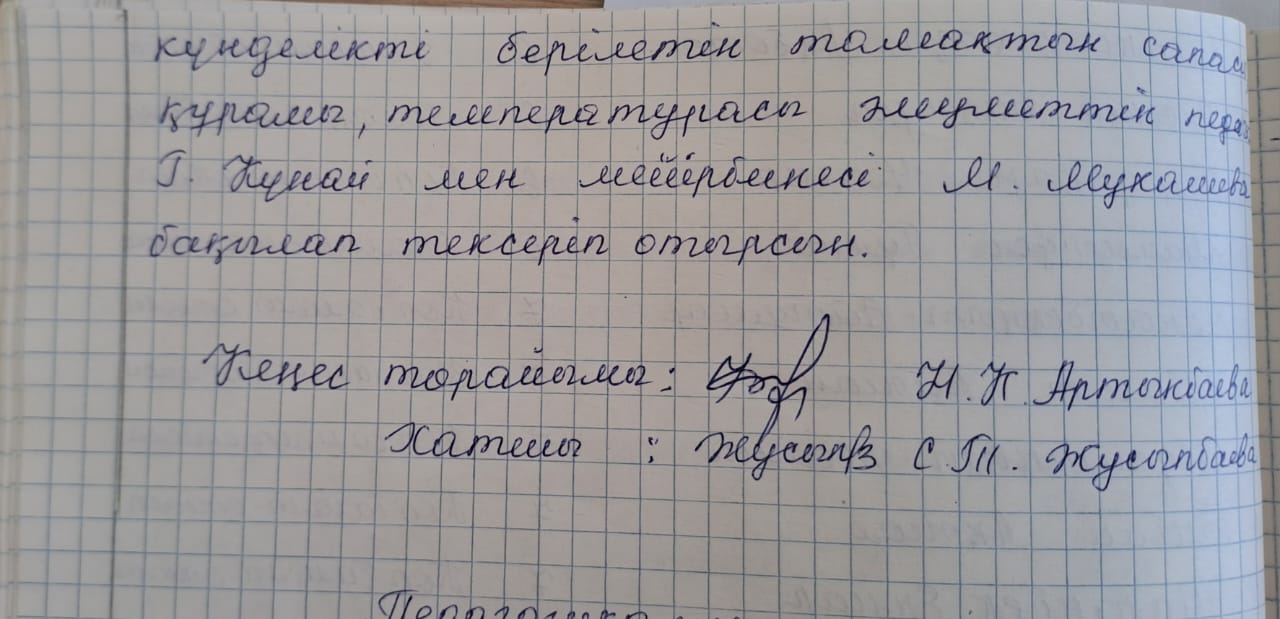 күнделікті берілетін тамақтың сапасы
құрамы, температурасы әлеуметтік педаг
Г. Кунай мен мейірбикесі М. Мукашева
бақылап тексеріп отырсын.
Кеңес төрайымы: Н. К. Артыкбаева
Хатшы : Жусып С. Т. Жусыпбаева